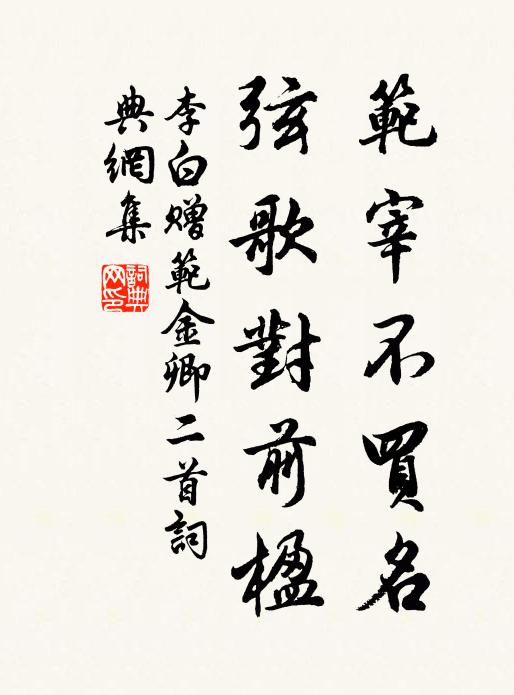 範宰不買名
弦歌對前楹
李白贈範金卿二首詞
典網集
詞典
网印